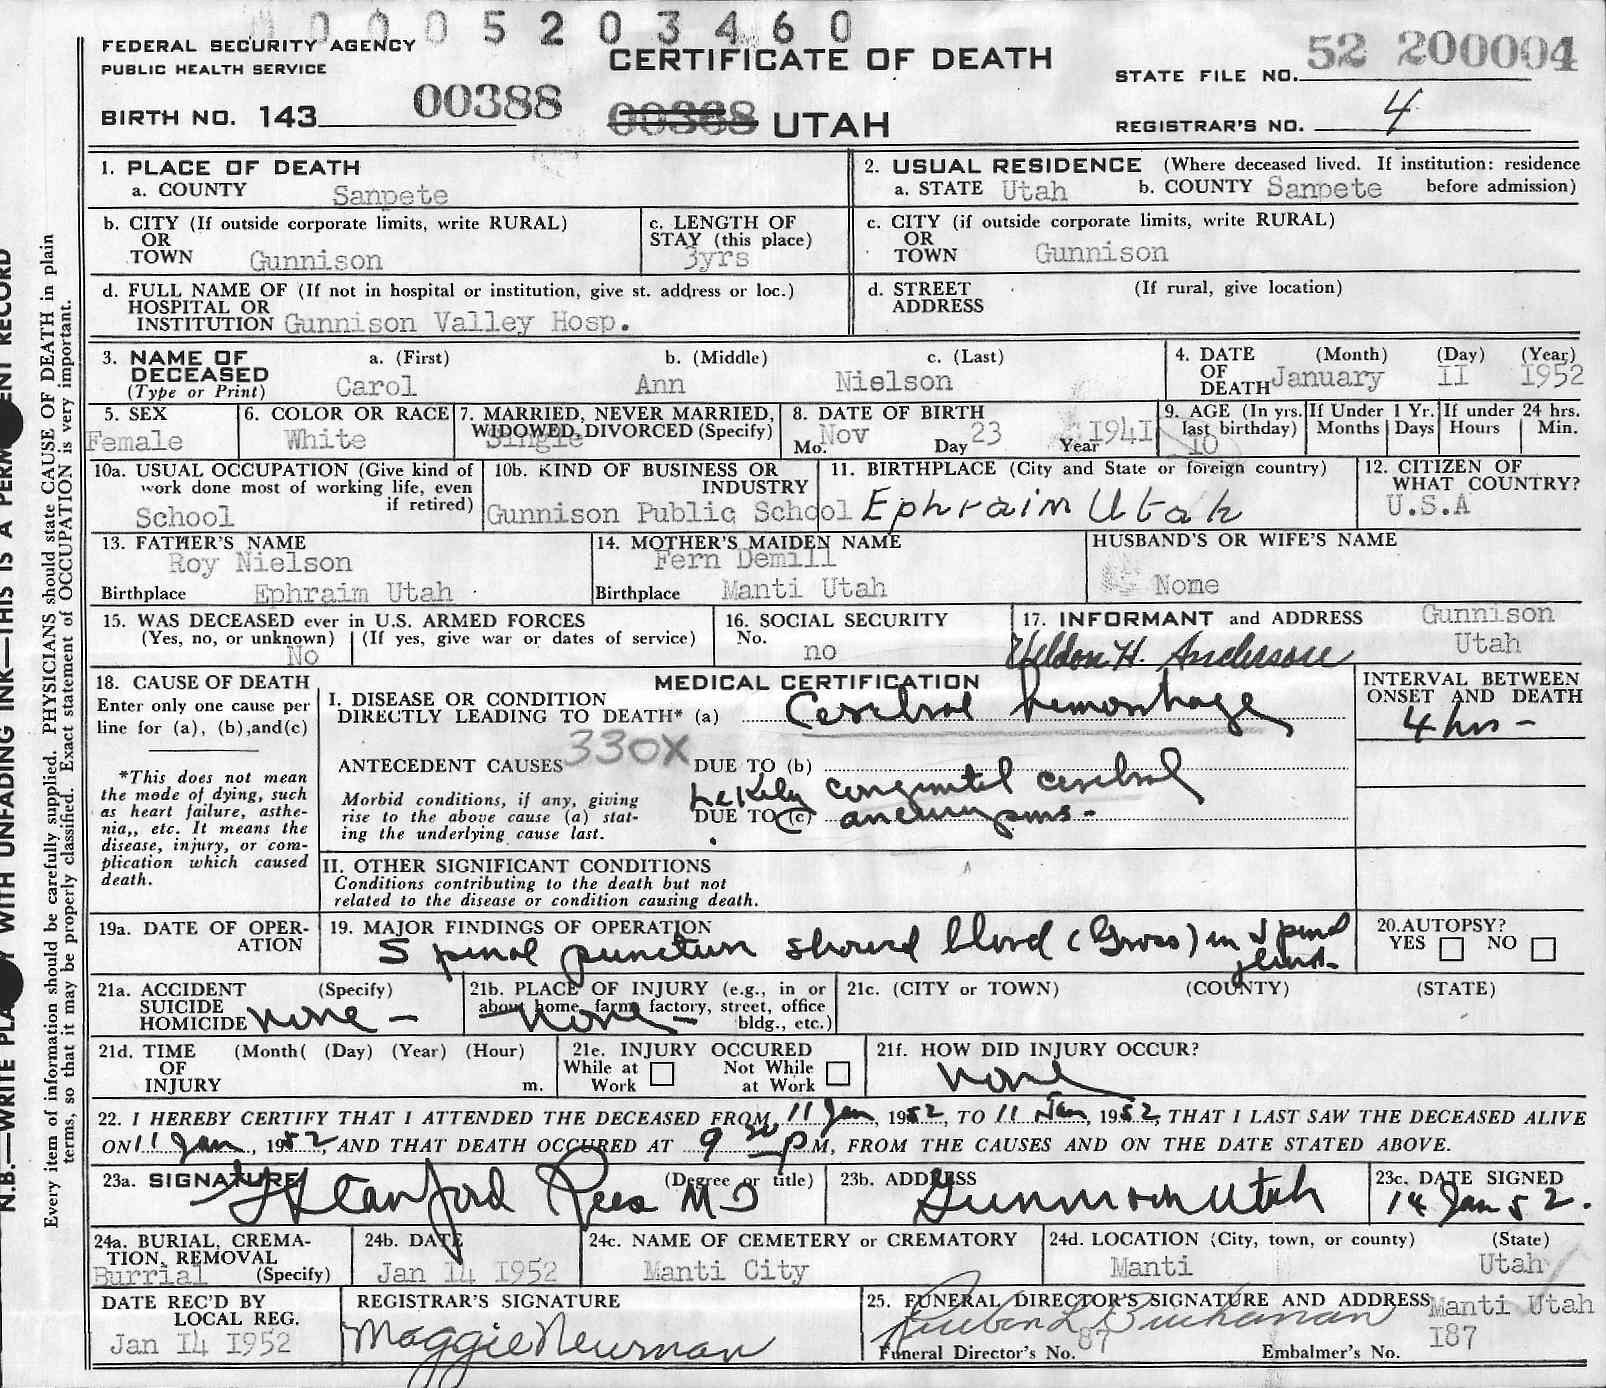 0005203460
FEDERAL SECURITY AGENCY
PUBLIC HEALTH SERVICE
CERTIFICATE OF DEATH
STATE FILE NO. 52 200004
BIRTH NO. 143 00388 00368 UTAH
REGISTRAR'S NO. 4
1. PLACE OF DEATH
a. COUNTY Sanpete
2. USUAL RESIDENCE (Where deceased lived. If institution: residence before admission)
a. STATE Utah b. COUNTY Sanpete
b. CITY (If outside corporate limits, write RURAL)
OR
TOWN Gunnison
c. LENGTH OF
STAY (this place)
3yrs
c. CITY (if outside corporate limits, write RURAL)
OR
TOWN Gunnison
d. FULL NAME OF (If not in hospital or institution, give st. address or loc.)
HOSPITAL OR
INSTITUTION Gunnison Valley Hosp.
d. STREET (If rural, give location)
ADDRESS
3. NAME OF a. (First) b. (Middle) c. (Last)
DECEASED
(Type or Print) Carol Ann Nielson
4. DATE (Month) (Day) (Year)
OF
DEATH January II 1952
5. SEX
Female
6. COLOR OR RACE
White
7. MARRIED, NEVER MARRIED,
WIDOWED, DIVORCED (Specify)
Single
8. DATE OF BIRTH
Mo. Nov Day 23 Year 1941
9. AGE (In yrs. last birthday)
10
If Under 1 Yr.
Months Days
If under 24 hrs.
Hours Min.
10a. USUAL OCCUPATION (Give kind of
work done most of working life, even
if retired)
School
10b. KIND OF BUSINESS OR
INDUSTRY
Gunnison Public School
11. BIRTHPLACE (City and State or foreign country)
Ephraim Utah
12. CITIZEN OF
WHAT COUNTRY?
U.S.A
13. FATHER'S NAME
Roy Nielson
Birthplace Ephraim Utah
14. MOTHER'S MAIDEN NAME
Fern Demill
Birthplace Manti Utah
HUSBAND'S OR WIFE'S NAME
Nome
15. WAS DECEASED ever in U.S. ARMED FORCES
(Yes, no, or unknown) (If yes, give war or dates of service)
No
16. SOCIAL SECURITY
No.
no
17. INFORMANT and ADDRESS Gunnison
Utah
Weldon H. Anderson
18. CAUSE OF DEATH
Enter only one cause per
line for (a), (b),and(c)
*This does not mean
the mode of dying, such
as heart failure, asthe-
nia,, etc. It means the
disease, injury, or com-
plication which caused
death.
MEDICAL CERTIFICATION
I. DISEASE OR CONDITION
DIRECTLY LEADING TO DEATH* (a) Cerebral hemorrhage
INTERVAL BETWEEN
ONSET AND DEATH
4 hrs -
330X
ANTECEDENT CAUSES DUE TO (b)
Morbid conditions, if any, giving
rise to the above cause (a) stat-
ing the underlying cause last.
Likely congenital cerebral
DUE TO (c) aneurysms-
II. OTHER SIGNIFICANT CONDITIONS
Conditions contributing to the death but not
related to the disease or condition causing death.
19a. DATE OF OPER-
ATION
19. MAJOR FINDINGS OF OPERATION
Spinal puncture showed blood (Gross) in spinal
fluid.
20.AUTOPSY?
YES NO
21a. ACCIDENT (Specify)
SUICIDE
HOMICIDE none -
21b. PLACE OF INJURY (e.g., in or
about home, farm, factory, street, office
bldg., etc.)
none -
21c. (CITY or TOWN) (COUNTY) (STATE)
21d. TIME (Month( (Day) (Year) (Hour)
OF
INJURY m.
21e. INJURY OCCURED
While at Work Not While at Work
21f. HOW DID INJURY OCCUR?
none
22. I HEREBY CERTIFY THAT I ATTENDED THE DECEASED FROM 11 Jan, 1952, TO 11 Jan, 1952, THAT I LAST SAW THE DECEASED ALIVE
ON 11 Jan, 1952, AND THAT DEATH OCCURED AT 9 30 PM, FROM THE CAUSES AND ON THE DATE STATED ABOVE.
23a. SIGNATURE (Degree or title)
Stanford Rees MD
23b. ADDRESS
Gunnison Utah
23c. DATE SIGNED
14 Jan 52.
24a. BURIAL, CREMA-
TION, REMOVAL
(Specify)
Burrial
24b. DATE
Jan 14 1952
24c. NAME OF CEMETERY or CREMATORY
Manti City
24d. LOCATION (City, town, or county) (State)
Manti Utah
DATE REC'D BY
LOCAL REG.
Jan 14 1952
REGISTRAR'S SIGNATURE
Maggie Newman
25. FUNERAL DIRECTOR'S SIGNATURE AND ADDRESS Manti Utah
Reuben L Buchanan
Funeral Director's No. 87 Embalmer's No. I87
N.B.—WRITE PLA Y WITH UNFADING INK—THIS IS A PERM ENT RECORD
Every item of information should be carefully supplied. PHYSICIANS should state CAUSE OF DEATH in plain
terms, so that it may be properly classified. Exact statement of OCCUPATION is very important.